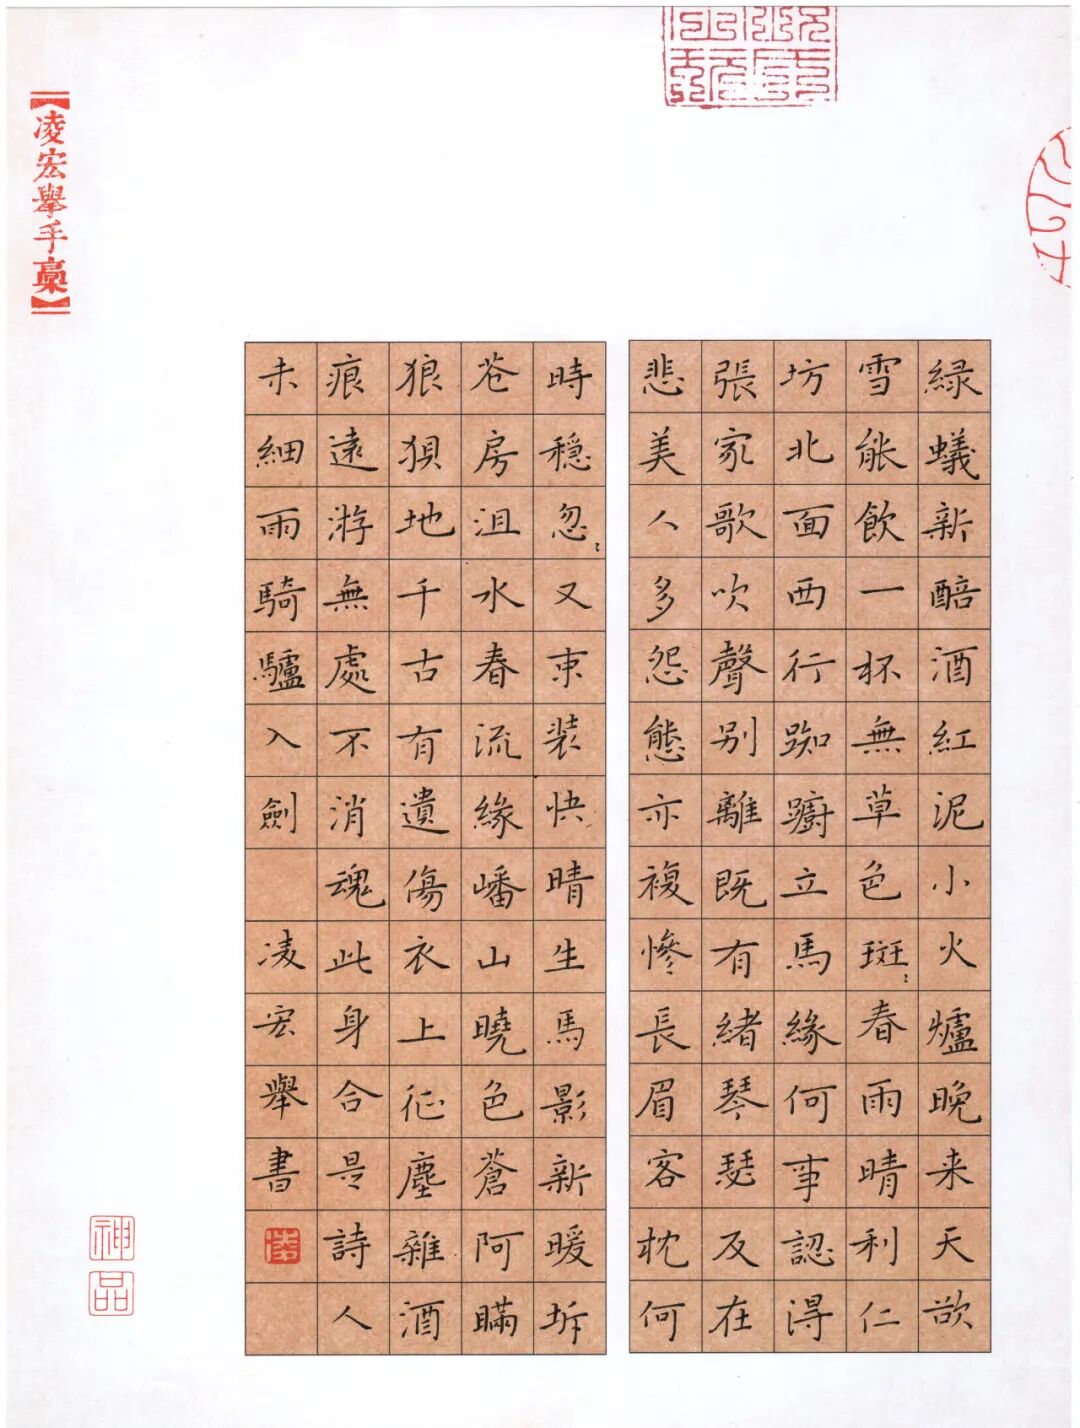 凌宏舉手稾
綠蟻新醅酒紅泥小火爐晚来天欲
雪能飲一杯無草色斑：春雨晴利仁
坊北面西行踟躕立馬緣何事認得
張家歌吹聲別離既有緒琴瑟及在
悲美人多怨態亦複慘長眉客枕何
時穩忽：又束裝快晴生馬影新暖坼
苍房沮水春流緣嶓山曉色蒼阿瞞
狼狽地千古有遺傷衣上征塵雜酒
痕遠游無處不消魂此身合是詩人
未細雨騎驢入劍 凌宏舉書
神品